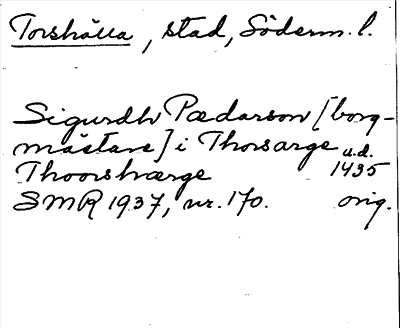 Torshälla, stad, Söderm. l.
Sigurdh Pædarson [borg-
mästare] i Thorsarge u.d.
Thoorshærge 1435
SMR 1937, nr. 170. orig.